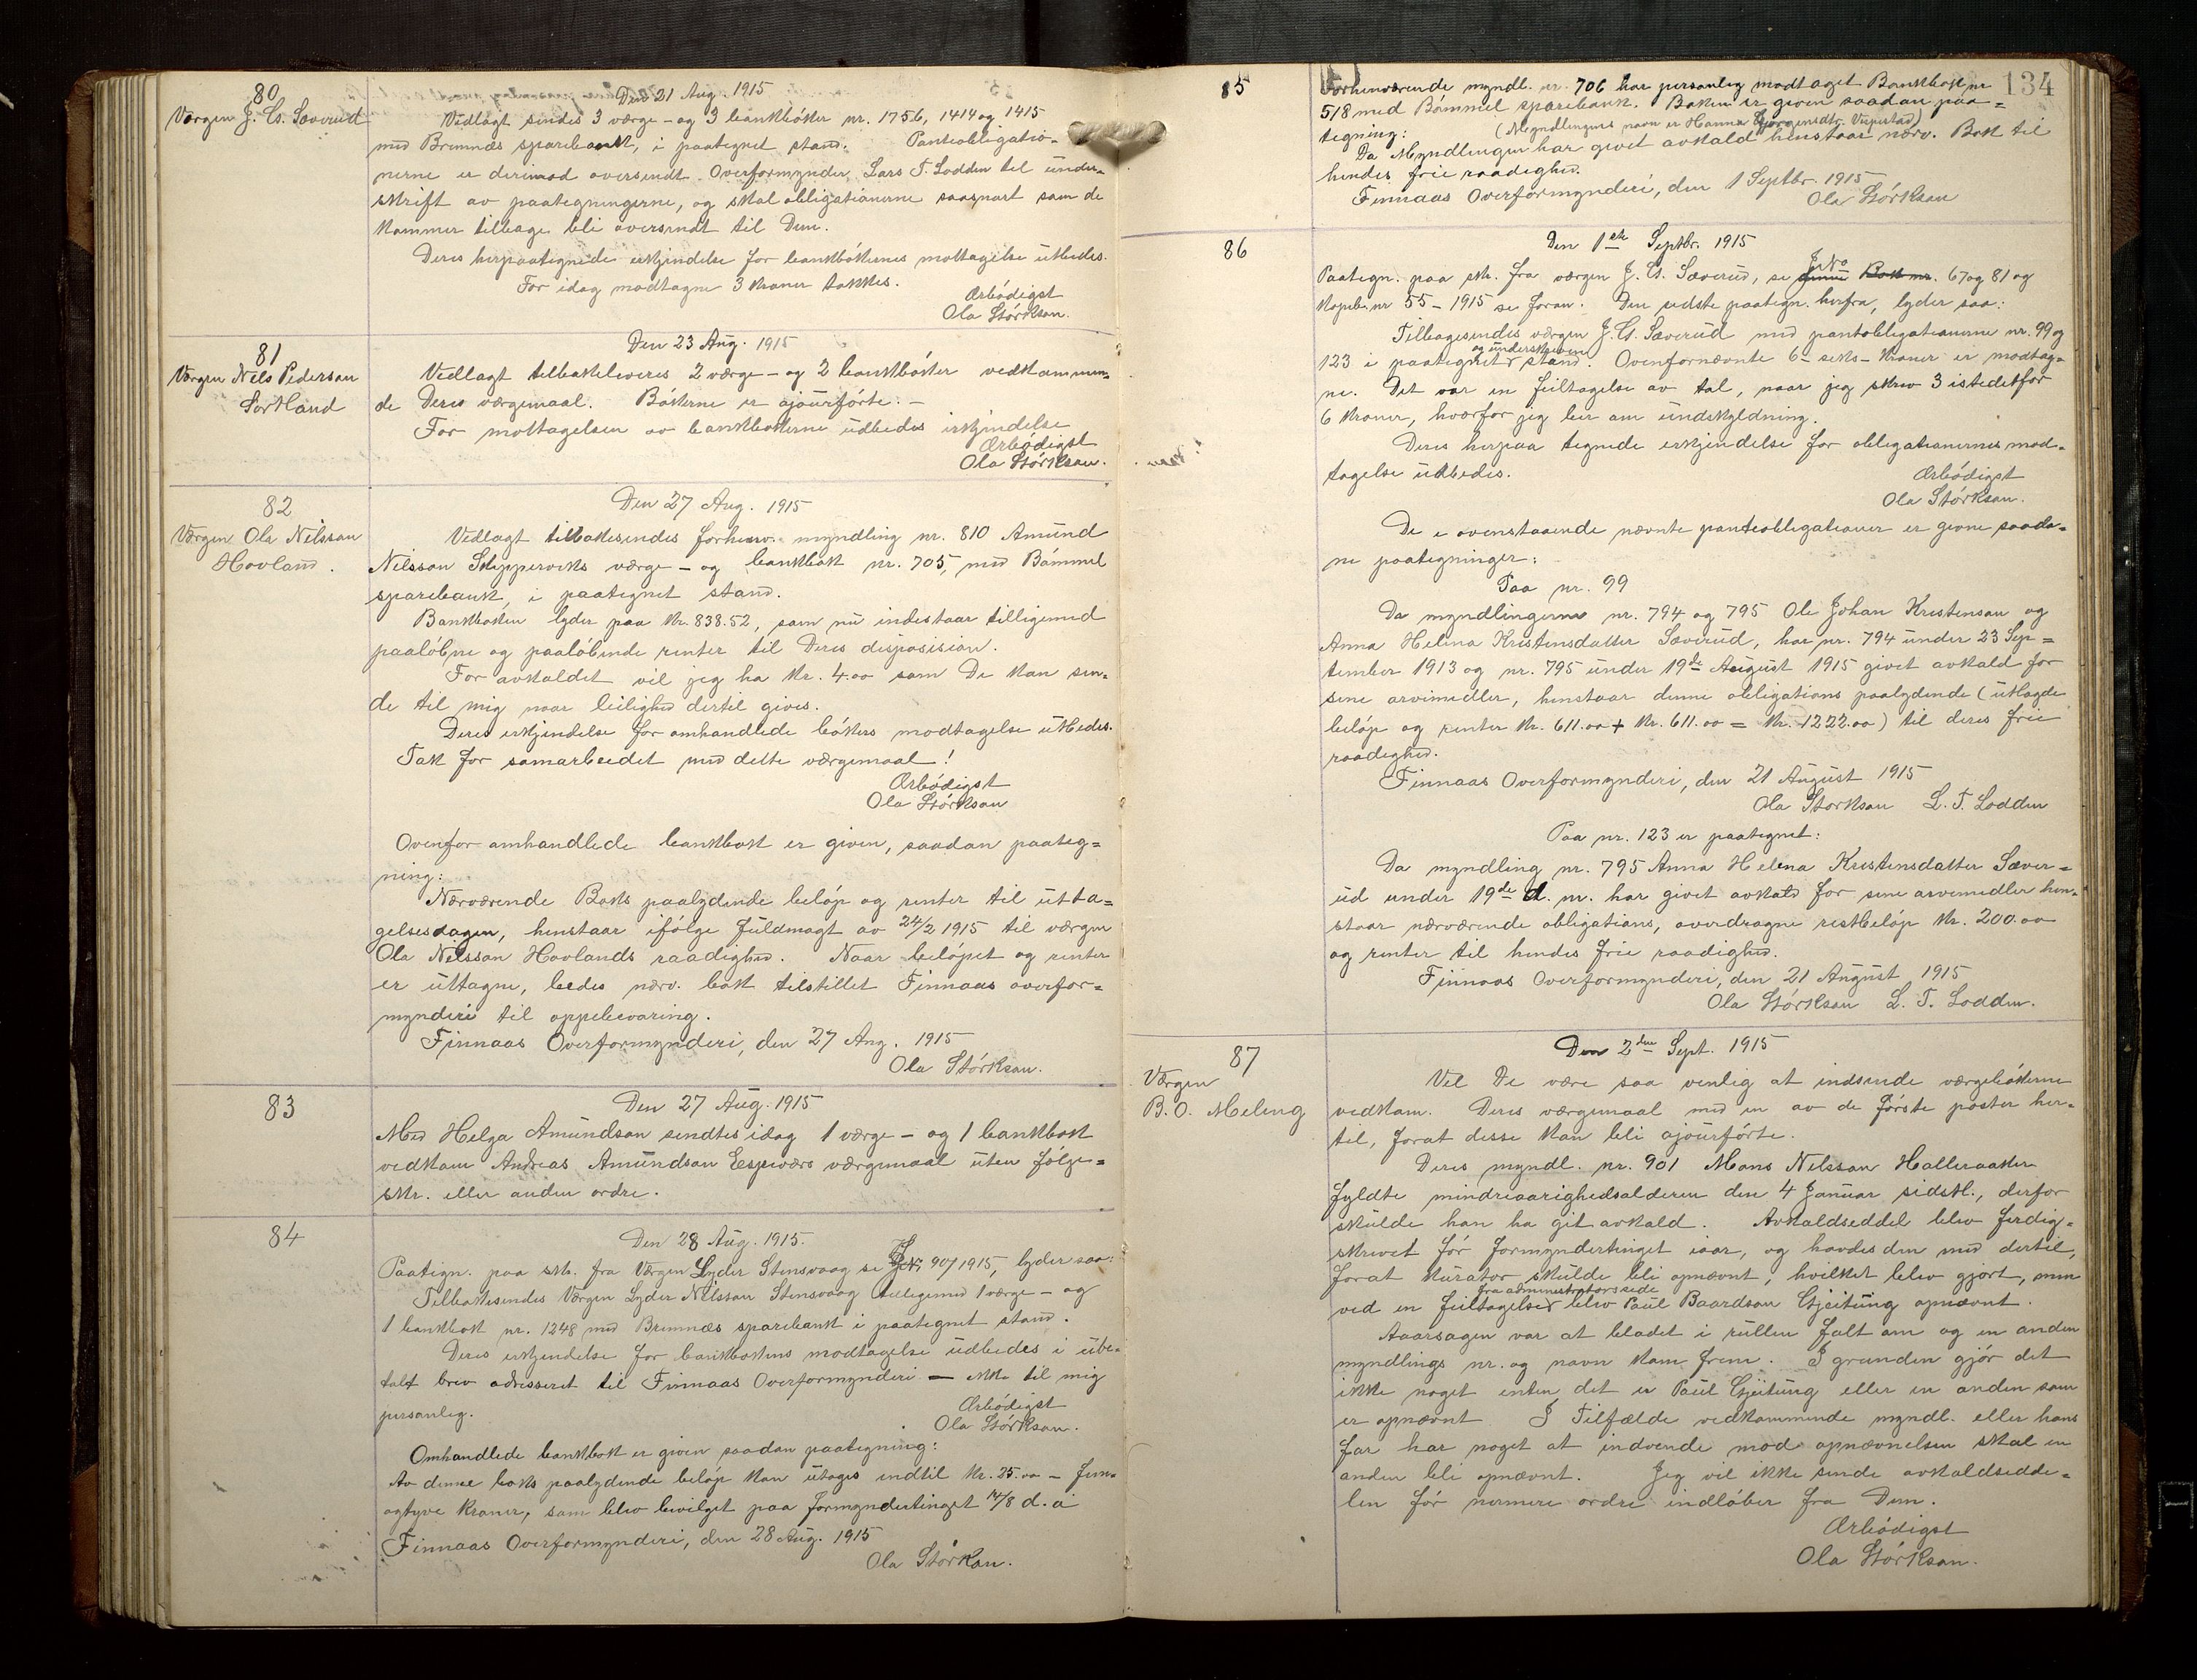 80
Værgen J. G. Sæverud
Den 21 Aug. 1915
Vedlagt sendes 3 værge - og 3 bankböker nr. 1756, 1414 og 1415
med Bremnæs sparebank, i paategnet stand. Panteobligatio-
nerne er derimod oversendt Overformynder Lars T. Lodden til under-
skrift av paategningerne, og skal obligationerne saasnart som de
kommer tilbage bli oversendt til Dem.
Deres herpaategnede erkjendelse for bankbökernes mottagelse utbedes.
For idag modtagne 3 kroner takkes.
Ærbödigst
Ola Störkson.
81
Værgen Nils Pederson
Sortland
Den 23 Aug. 1915
Vedlagt tilbakeleveres 2 værge - og 2 bankböker vedkommen-
de Deres værgemaal. Bökerne er ajourförte. -
For mottagelsen av bankbökerne udbedes erkjendelse
Ærbödigst
Ola Störkson.
82
Værgen Ola Nilsson
Hovland.
Den 27 Aug. 1915
Vedlagt tilbakesendes forhenv. myndling nr. 810 Amund
Nilsson Skippervicks værge - og bankbok nr. 705, med Bömmel
sparebank, i paategnet stand.
Bankboken lyder paa Kr. 838.52, som nu indestaar tilligemed
paalöbne og paalöbende renter til Deres disposision.
For avkaldet vil jeg ha Kr. 4.00 som De kan sen-
de til mig naar leilighed dertil gives.
Deres erkjendelse for omhandlede bökers modtagelse utbedes.
Tak for samarbeidet med dette værgemaal!
Ærbödigst
Ola Störkson
Ovenfor omhandlede bankbok er given, saadan paateg=
ning:
Nærværende Boks paalydende belöp og renter til utta=
gelsesdagen, henstaar ifölge fuldmagt av 24/2 1915 til værgen
Ola Nilsson Hovlands raadighed. Naar belöpet og renter
er uttagne, bedes nærv. bok tilstillet Finnaas overfor=
mynderi til oppbevaring.
Finnaas Overformynderi, den 27 Aug. 1915
Ola Störkson.
83
Den 27 Aug. 1915
Med Helga Amundson sendtes idag 1 værge - og 1 bankbok
vedkom Andreas Amundson Espeværs værgemaal uten fölge=
skr. eller anden ordre.
84
Den 28 Aug. 1915.
Paategn. paa skr. fra Værgen Lyder Stensvaag se J.N. 90/1915, lyder saa:
Tilbakesendes Værgen Lyder Nilsson Stensvaag tillegemed 1 værge - og
1 bankbok nr. 1248 med Bremnæs sparebank i paategnet stand.
Deres erkjendelse for bankbokens modtagelse udbedes i ube-
talt brev adresseret til Finnaas Overformynderi - ikke til mig
personlig.
Ærbödigst
Ola Störkson.
Omhandlede bankbok er given saadan paategning:
Av denne boks paalydende belöp kan utages indtil Kr. 25.00 - fem-
ogtyve kroner, som blev bevilget paa formyndertinget 14/8 d. å
Finnaas Overformynderi, den 28 Aug. 1915
Ola Störkson.
134
85
Forhenværende myndl. nr. 706 har personlig modtaget Bankbok nr
518 med Bömmel sparebank. Boken er given saadan paa=
tegning: (Myndlingens navn er Hanna Jörgensdtr. Vespestad)
Da Myndlingen har givet avkald henstaar nærv. Bok til
hendes frie raadighed.
Finnaas Overformynderi, den 1 Septbr. 1915
Ola Störkson
86
Den 1ste Septbr. 1915
Paategn. paa skr. fra værgen J. G. Sæverud, se J.No 67 og 81 og
Kopibk nr 55 - 1915 se foran. Den sidste paategn. herfra, lyder saa:
Tilbagesendes værgen J. G. Sæverud med pantobligationerne nr. 99 og
123 i paategnet og underskreven stand. Ovenfornævnte 6 - seks - Kroner er modtag-
ne. Det var en feiltagelse av tal, naar jeg skrev 3 istedetfor
6 kroner, hvorfor jeg ber om undskyldning.
Deres herpaa tegnede erkjendelse for obligationernes mod-
tagelse utbedes.
Ærbödigst
Ola Störkson.
De i ovenstaaende nævnte panteobligationer er givne saada-
ne paategninger:
Paa nr. 99
Da myndlingerne nr. 794 og 795 Ole Johan Kristenson og
Anna Helina Kristensdatter Sæverud, har nr. 794 under 23 Sep=
tember 1913 og nr. 795 under 19de August 1915 givet avkald for
sine arvemidler, henstaar denne obligations paalydende (utlagde
belöp og renter Kr. 611.00 + Kr. 611.00 = Kr. 1222.00) til deres frie
raadighed.
Finnaas Overformynderi, den 21 August 1915
Ola Störkson L. T. Lodden
Paa nr. 123 er paategnet:
Da myndling nr. 795 Anna Helena Kristensdatter Sæver=
ud under 19de d. m. har givet avkald for sine arvemidler hen-
staar nærværende obligations, overdragne restbelöp Kr. 200.00
og renter til hendes frie raadighed.
Finnaas Overformynderi, den 21 August 1915
Ola Störkson L. T. Lodden.
87
Værgen
B. O. Meling
Den 2den Sept. 1915
Vil De være saa venlig at indsende værgebökerne
vedkom. Deres værgemaal med en av de förste poster her-
til, forat desse kan bli ajourförte.
Deres myndl. nr. 901 Mons Nilsson Halleraaker
fyldte mindreaarighedsalderen den 4 Januar sidstl., derfor
skulde han ha git avkald. Avkaldseddel blev ferdig-
skrevet för formyndertinget iaar, og havdes den med dertil,
forat kurator skulde bli opnævnt, hvilket blev gjort, men
ved en feiltagelse fra administrators side blev Paul Baardson Gjeitung opnævnt.
Aaarsagen var at bladet i rullen falt om og en anden
myndlings nr. og navn kom frem. I grunden gjör det
ikke noget enten det er Paul Gjeitung eller en anden som
er opnævnt I Tilfælde vedkommende myndl. eller hans
far har noget at indvende mod opnævnelsen skal en
anden bli opnævnt. Jeg vil ikke sende avkaldsedde-
len för nermere ordre indlöber fra Dem.
Ærbödigst
Ola Störkson.